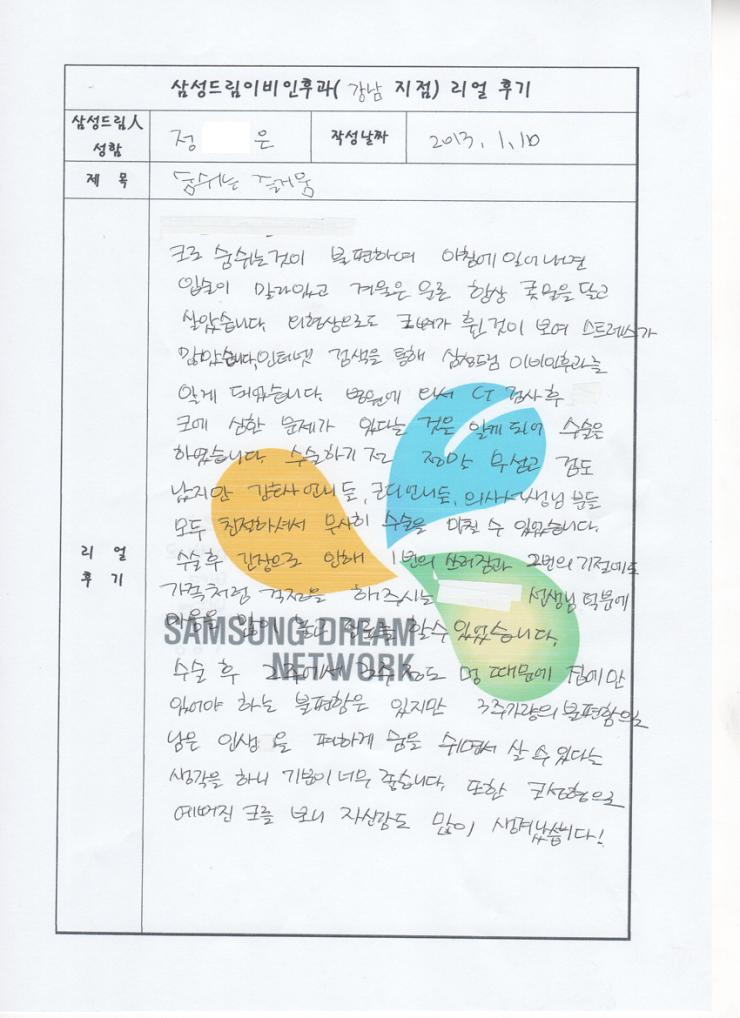 삼성드림이비인후과( 강남 지점) 리얼 후기
삼성드림人 성함
정 은
작성날짜
2013. 1. 10
제 목
숨쉬는 즐거움
리 얼 후 기
코로 숨쉬는것이 불편하여 아침에 일어나면
입술이 말라있고 겨울은 물론 항상 콧물을 달고
살았습니다. 외형상으로도 코뼈가 휜것이 보여 스트레스가
많았습니다. 인터넷 검색을 통해 삼성드림 이비인후과를
알게 되었습니다. 병원에 와서 CT 검사후
코에 심한 문제가 있다는 것을 알게되어 수술을
하였습니다. 수술하기 전 정말 무섭고 겁도
났지만 간호사언니들, 코디언니들, 의사선생님 분들
모두 친절하셔서 무사히 수술을 마칠 수 있었습니다.
수술후 긴장으로 인해 1번의 쓰러짐과 2번의 기절에도
가족처럼 걱정을 해주시는 선생님 덕분에
마음을 놓고 진료를 할수있었습니다.
SAMSUNG DREAM
NETWORK
수술 후 2주에서 3주정도 멍 때문에 집에만
있어야 하는 불편함은 있지만 3주가량의 불편함으로
남은 인생을 편하게 숨을 쉬면서 살 수 있다는
생각을 하니 기분이 너무 좋습니다. 또한 코성형으로
예뻐진 코를 보니 자신감도 많이 생겨났습니다!